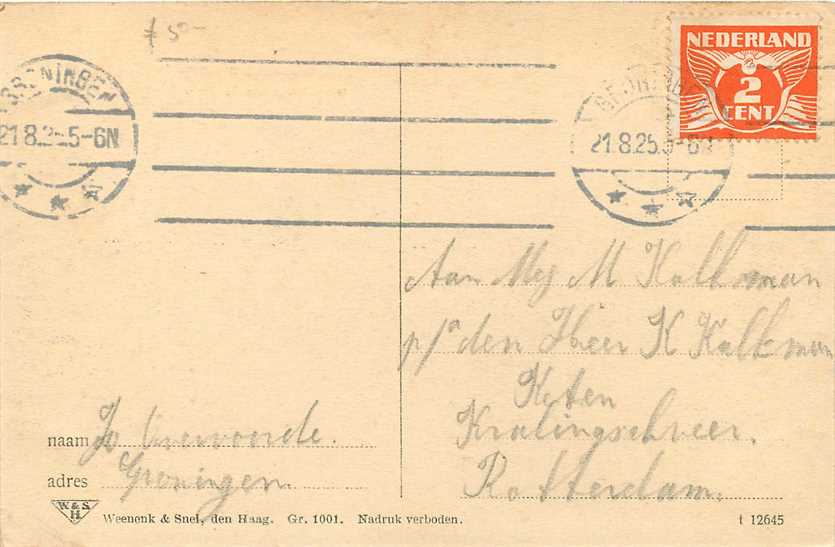 f 50-
GRONINGEN
21 8.25.5-6N
GRONINGEN
21 8.25.5-6N
NEDERLAND
2
CENT
Aan Mej M Kalkman
p/a den Heer K Kalkman
Keten
Kralingscheveer.
Rotterdam.
naam Jo
adres Groningen.
W. & S.
H.
Weenenk & Snel, den Haag. Gr. 1001. Nadruk verboden.
t 12645